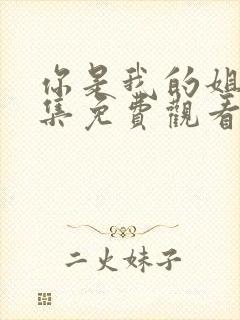 你是我的姐
集免費觀看
二火妹子